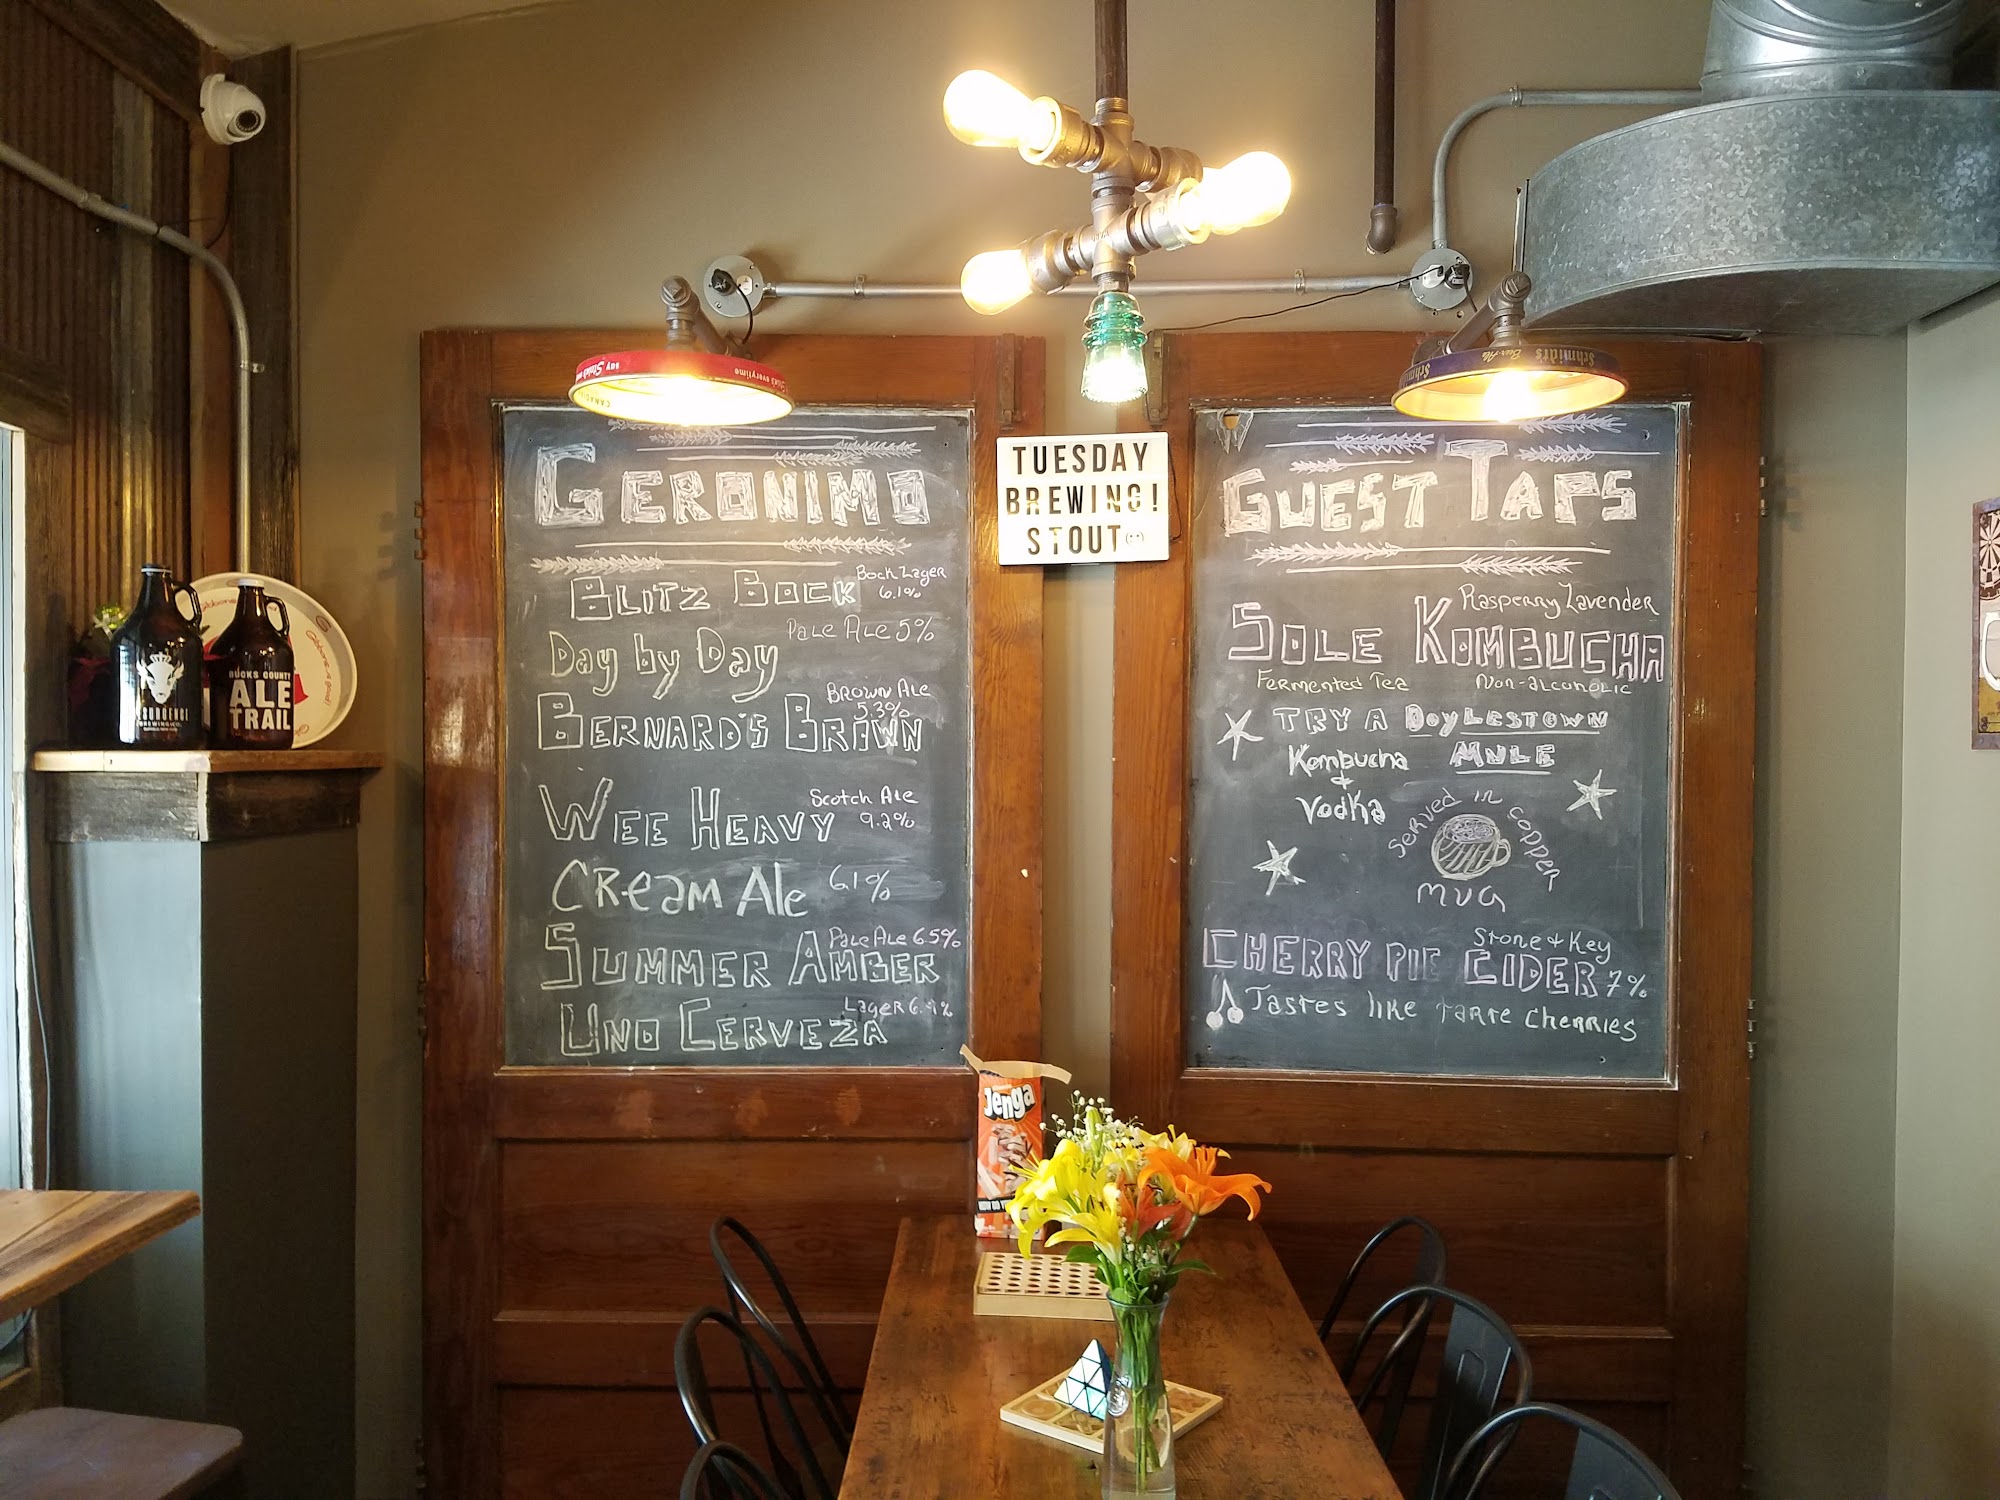 GERONIMO
BLITZ BOCK
Bock Lager
6.1%
Day by Day
Pale Ale 5%
BERNARD'S BROWN
BROWN Ale
5.3%
WEE HEAVY
Scotch Ale
9.2%
CReam Ale 6.1%
SUMMER AMBER
Pale Ale 6.5%
UNO CERVEZA
TUESDAY
BREWING!
STOUT
GUEST TAPS
Rasperry Lavender
SOLE KOMBUCHA
Fermented Tea
Non-alcoholic
TRY A DOYLESTOWN
MULE
Kombucha
&
Vodka
Served in copper
MUG
CHERRY PIE CIDER 7%
Stone & Key
Tastes like tarte cherries
BUCKS COUNTY
ALE
TRAIL
Jenga
Schmidt's